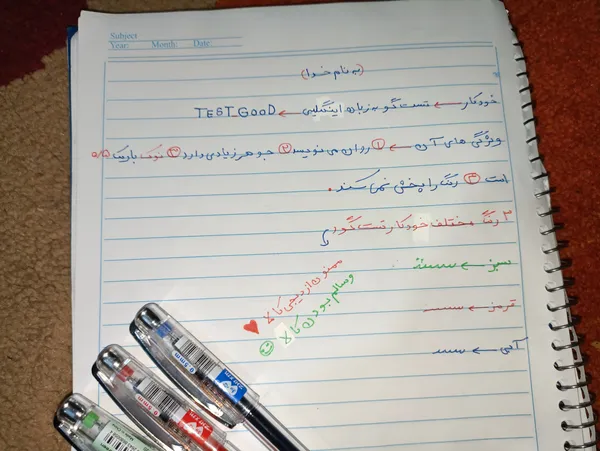 Subject
Year: Month: Date:
(به نام خدا)
خودکار ← تست گو به زبان اینگلیسی ← TEST GOOD
ویژگی های آن ← ① روان می نویسد ② جوهر زیادی دارد ③ نوک باریک ۰/۵
است ④ رنگ را پخش نمی کند.
۳ رنگ مختلف خودکار تست گود
سبز ←
قرمز ←
آبی ←
ممنون از دیجی کالا
و سالم بودن کالا